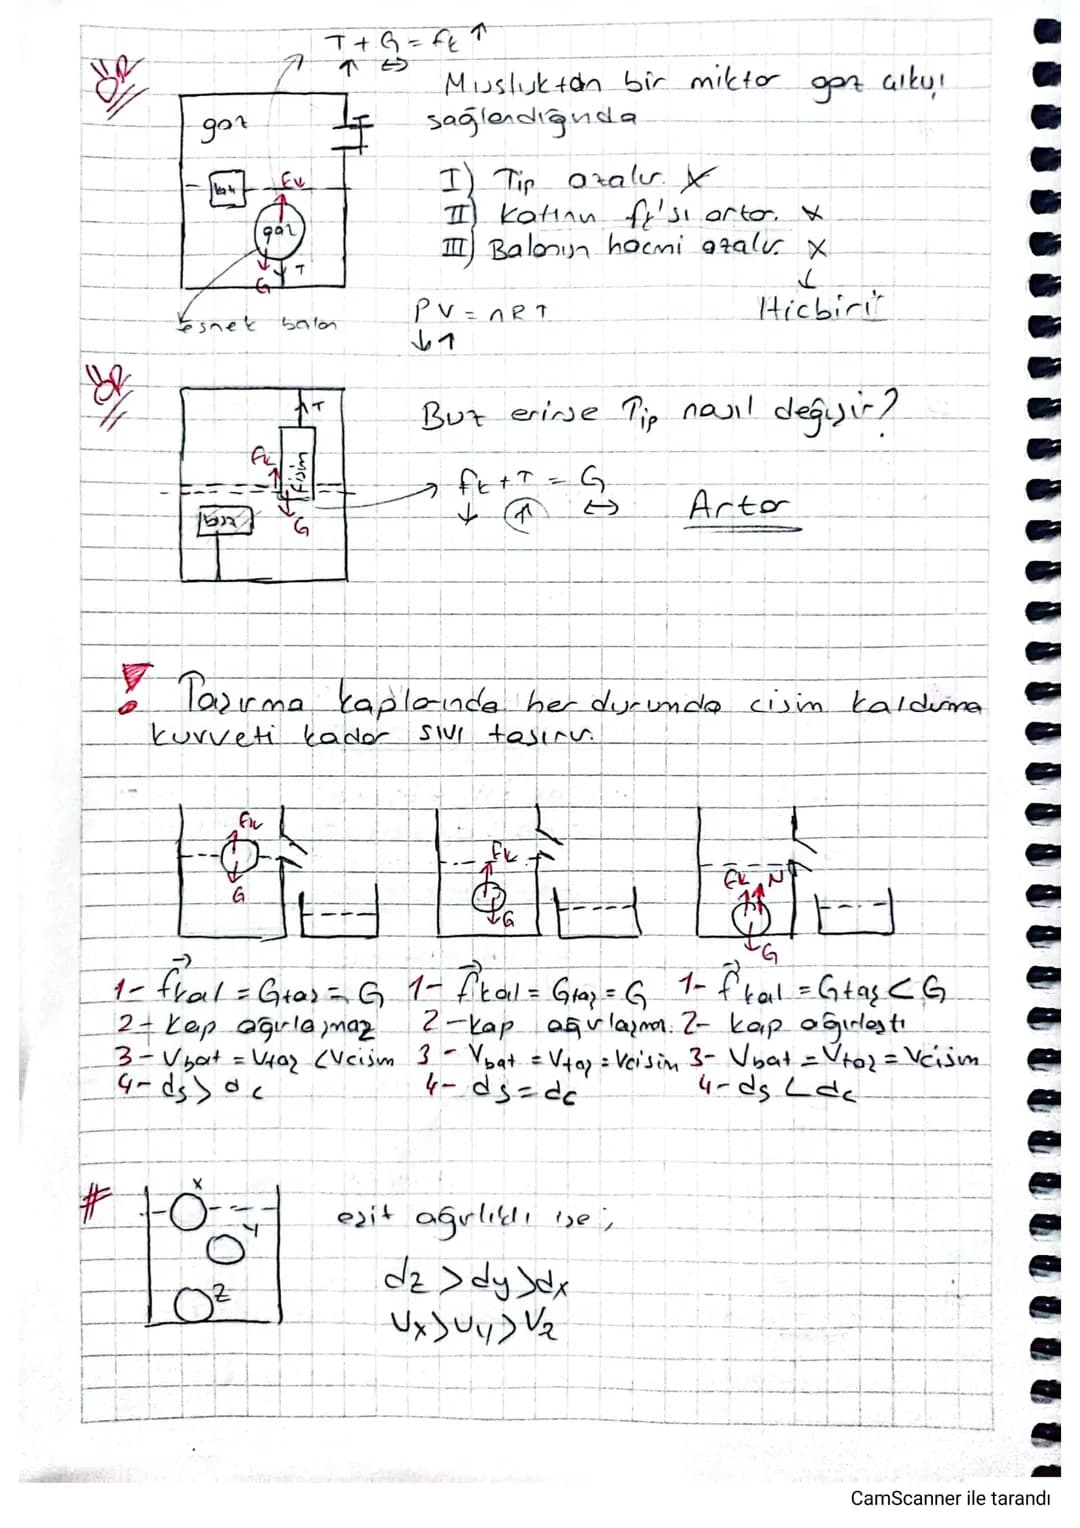 T + G = fk ↑
↑ ↔
ÖR
Musluktan bir miktar gaz çıkışı
sağlandığında
gaz
katı
Fk
gaz
G
T
esnek balon
I) Tip azalır. X
II) Katının fk'sı artar. X
III) Balonun hacmi azalır. X
↓
Hiçbiri
PV = nRT
↓↑
ÖR
T
Fk
cisim
G
buz
Buz erirse Tip nasıl değişir?
→ fk + T = G
↓ ↑ ↔
Artar
! Taşırma kaplarında her durumda cisim kaldırma
kuvveti kadar sıvı taşırır.
Fk
G
Fk
G
Fk N
G
1- Fkal = Gtaş = G
2- Kap ağırlaşmaz
3- Vbat = Vtaş < Vcisim
4- ds > dc
1- Fkal = Gtaş = G
2- kap ağırlaşmaz.
3- Vbat = Vtaş = Vcisim
4- ds = dc
1- Fkal = Gtaş < G
2- kap ağırlaştı
3- Vbat = Vtaş = Vcisim
4- ds < dc
#
x
y
z
eşit ağırlıklı ise;
dz > dy > dx
Vx > Vy > Vz
CamScanner ile tarandı